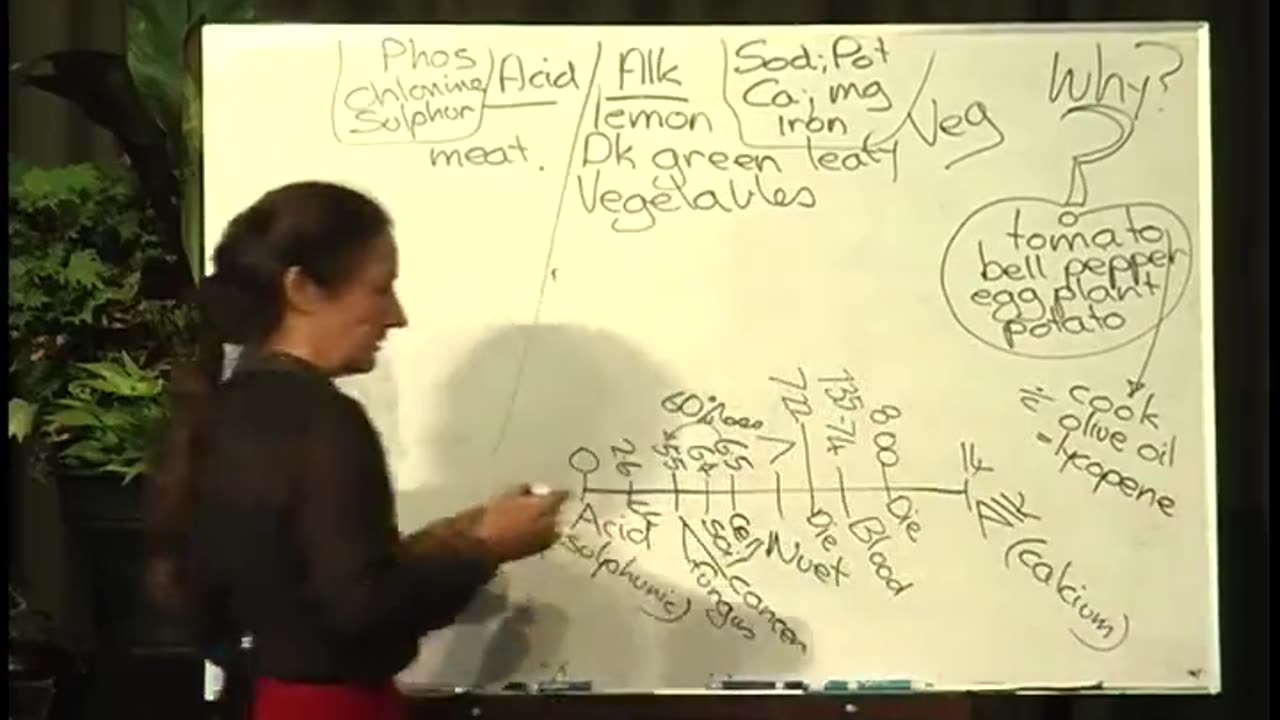 Phos
Chlorine
Sulphur
Acid
meat.
Alk
lemon
Dk green leafy
Vegetables
Sod; Pot
Ca; mg
iron
Veg
Why?
tomato
bell pepper
egg plant
potato
cook
olive oil
= lycopene
60%
0
26
55
64
65
7
722
735-74
800
14
Acid
Soil
Nuet
Die
Blood
Die
Alk
(calcium)
fungus
Cancer